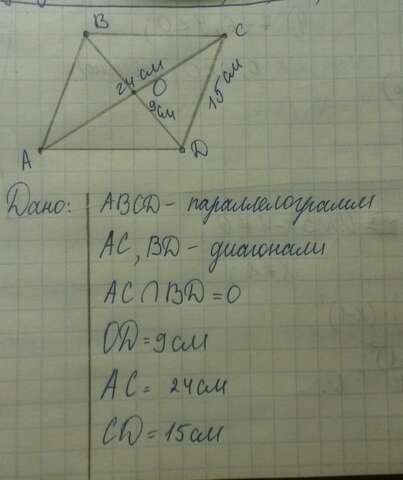 B
C
24 см
O
9 см
15 см
A
D
Дано: ABCD - параллелограмм
AC, BD - диагонали
AC ∩ BD = O
OD = 9 см
AC = 24 см
CD = 15 см